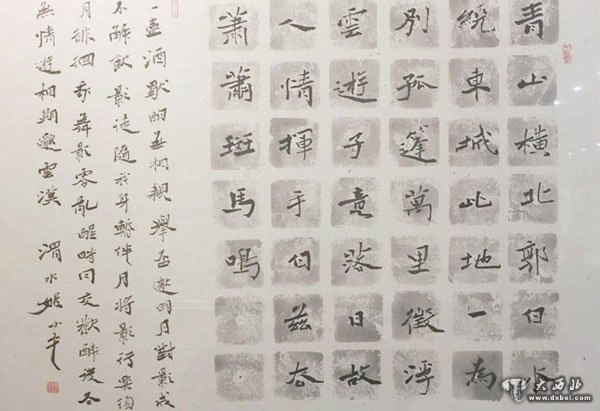 青山橫北郭白水
繞東城此地一為
別孤篷萬里徵浮
雲遊子意落日故
人情揮手自茲去
蕭蕭班馬鳴
一壺酒獨酌無相親舉杯邀明月對影成
不解飲影徒隨我身暫伴月將影行樂須
月徘徊我舞影零亂醒時同交歡醉後各
無情遊相期邈雲漢 渭水姬小平
大西北
www.dxbei.com